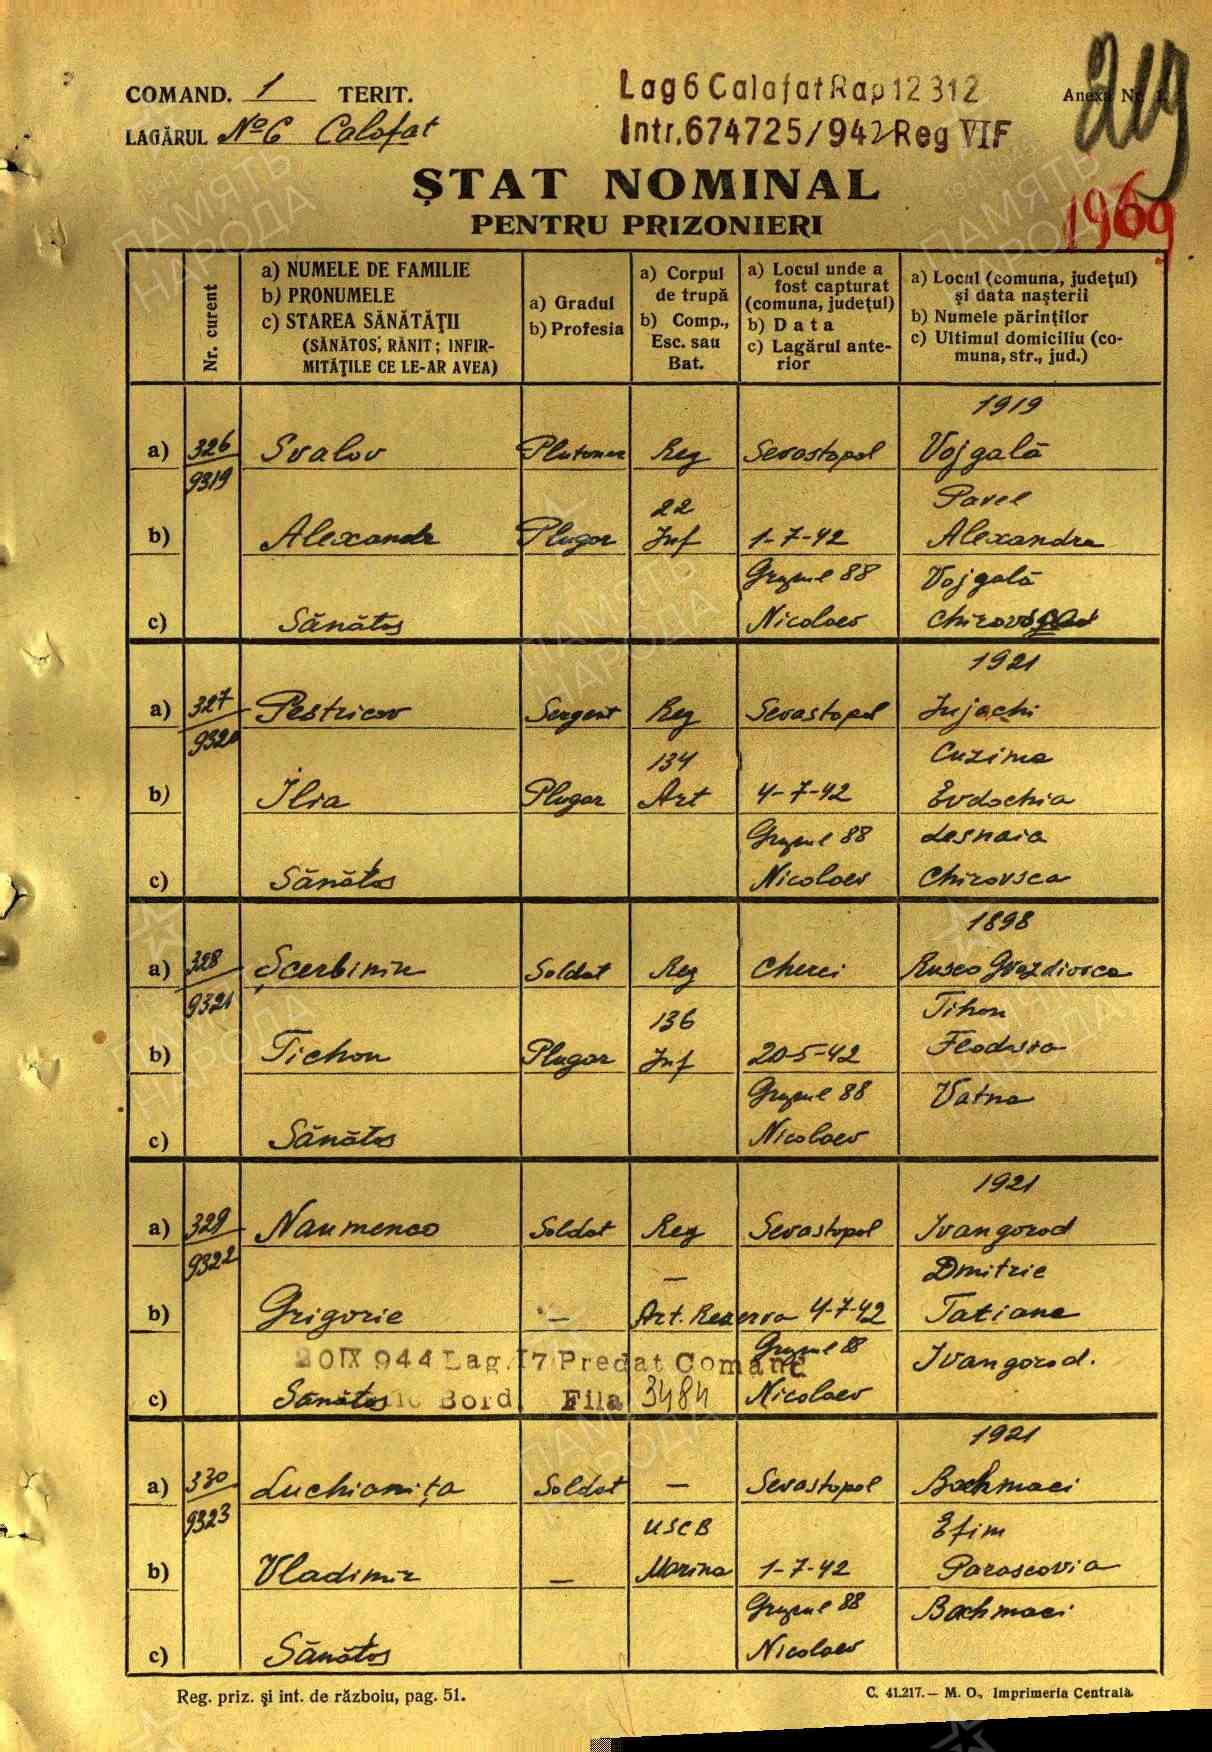 219
COMAND. 1 TERIT.
LAGĂRUL No 6 Calafat
Lag 6 Calafat Rap 12 312
Intr. 674725/942 Reg VII F
Anexa Nr.
1969
ȘTAT NOMINAL
PENTRU PRIZONIERI
Nr. curent
a) NUMELE DE FAMILIE
b) PRONUMELE
c) STAREA SĂNĂTĂȚII
(SĂNĂTOS, RĂNIT; INFIR-
MITĂȚILE CE LE-AR AVEA)
a) Gradul
b) Profesia
a) Corpul
de trupă
b) Comp.,
Esc. sau
Bat.
a) Locul unde a
fost capturat
(comuna, județul)
b) Data
c) Lagărul ante-
rior
a) Locul (comuna, județul)
și data nașterii
b) Numele părinților
c) Ultimul domiciliu (co-
muna, str., jud.)
1919
a) 326 Svalov Plutoner Reg Sevastopol Vojgală
9319
22 Pavel
b) Alexandr Plugar Inf 1-7-42 Alexandra
Grupul 88 Vojgală
c) Sănătos Nicolaev
1921
a) 327 Pestricov Sergent Reg Sevastopol Jujachi
9320
134 Cuzima
b) Ilia Plugar Art 4-7-42 Evdochia
Grupul 88 Lesnaia
c) Sănătos Nicolaev Chirovsca
1898
a) 328 Șcerbinin Soldat Reg Cherci Rusco Gvazdiovca
9321
136 Tihon
b) Tichon Plugar Inf 20-5-42 Feodosia
Grupul 88 Vatna
c) Sănătos Nicolaev
1921
a) 329 Naumenco Soldat Reg Sevastopol Ivangorod
9322
— Dmitrie
b) Grigorie — Art. Rezerva 4-7-42 Tatiana
Grupul 88 Ivangorod.
20 IX 944 Lag. 17 Predat Comand
c) Sănătos Bord. Fila 3484 Nicolaev
1921
a) 330 Luchianița Soldat — Sevastopol Bachmaci
9323
USCB Efim
b) Vladimir — Marina 1-7-42 Parascovia
Grupul 88 Bachmaci
c) Sănătos Nicolaev
Reg. priz. și int. de războiu, pag. 51.
C. 41.217. — M. O., Imprimeria Centrală.
ПАМЯТЬ
НАРОДА